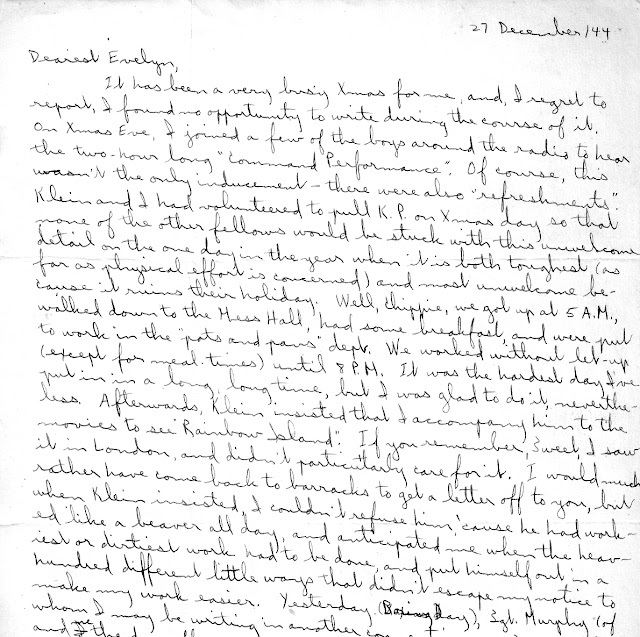 27 December/44
Dearest Evelyn,
It has been a very busy Xmas for me, and, I regret to
report, I found no opportunity to write during the course of it.
On Xmas Eve, I joined a few of the boys around the radio to hear
the two-hour long "Command Performance". Of course, this
wasn't the only inducement – there were also "refreshments".
Klein and I had volunteered to pull K.P. on Xmas day so that
none of the other fellows would be stuck with this unwelcome
detail on the one day in the year when it is both toughest (as
far as physical effort is concerned) and most unwelcome be-
cause it ruins their holiday). Well, Chippie, we got up at 5 A.M.,
walked down to the Mess Hall, had some breakfast, and were put
to work in the "pots and pans" dept. We worked without let-up
(except for meal times) until 8 PM. It was the hardest day I've
put in in a long, long time, but I was glad to do it, neverthe-
less. Afterwards, Klein insisted that I accompany him to the
movies to see "Rainbow Island". If you remember, Sweet, I saw
it in London, and didn't particularly care for it. I would much
rather have come back to barracks to get a letter off to you, but
when Klein insisted, I couldn't refuse him, 'cause he had work-
ed like a beaver all day, and anticipated me when the heav-
iest or dirtiest work had to be done, and put himself out in a
hundred different little ways that didn't escape my notice to
make my work easier. Yesterday (Boxing Day), Sgt. Murphy (of
whom I may be writing in another
and the